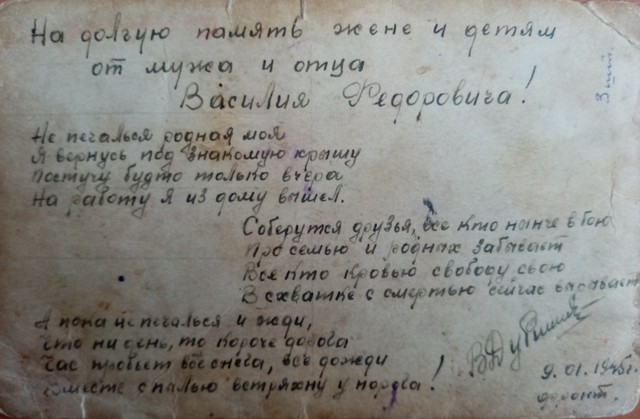 На долгую память жене и детям
от мужа и отца
Василия Федоровича!
Не печалься родная моя
Я вернусь под знакомую крышу
Постучу будто только вчера
На работу я из дому вышел.
Соберутся друзья, все кто нынче в бою
Про семью и родных забывает
Все кто кровью свободу свою
В схватке с смертью сейчас вырывает
А пока не печалься и жди,
Что ни день, то короче дорога
Час пробьет все снега, все дожди
Вместе с пылью встряхну у порога!
9.01.1945г.
фронт.
3 шт.